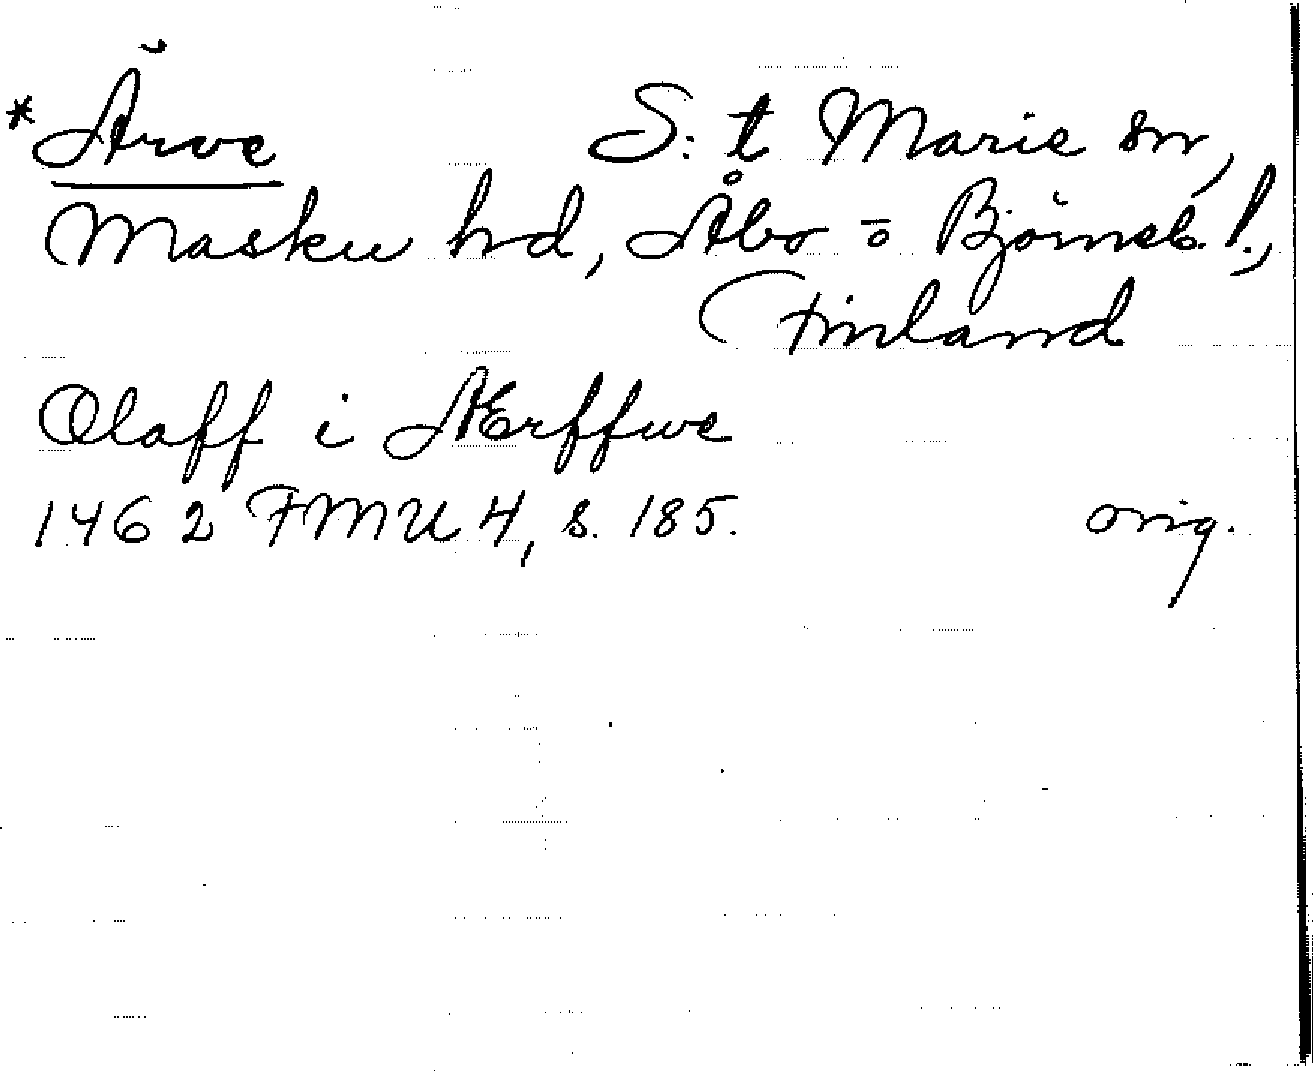 * Ärve S:t Marie sn,
Masku hd, Åbo o Björneb. l.,
Finland
Olaff i Ærffwe
1462 FMU 4, s. 185. orig.